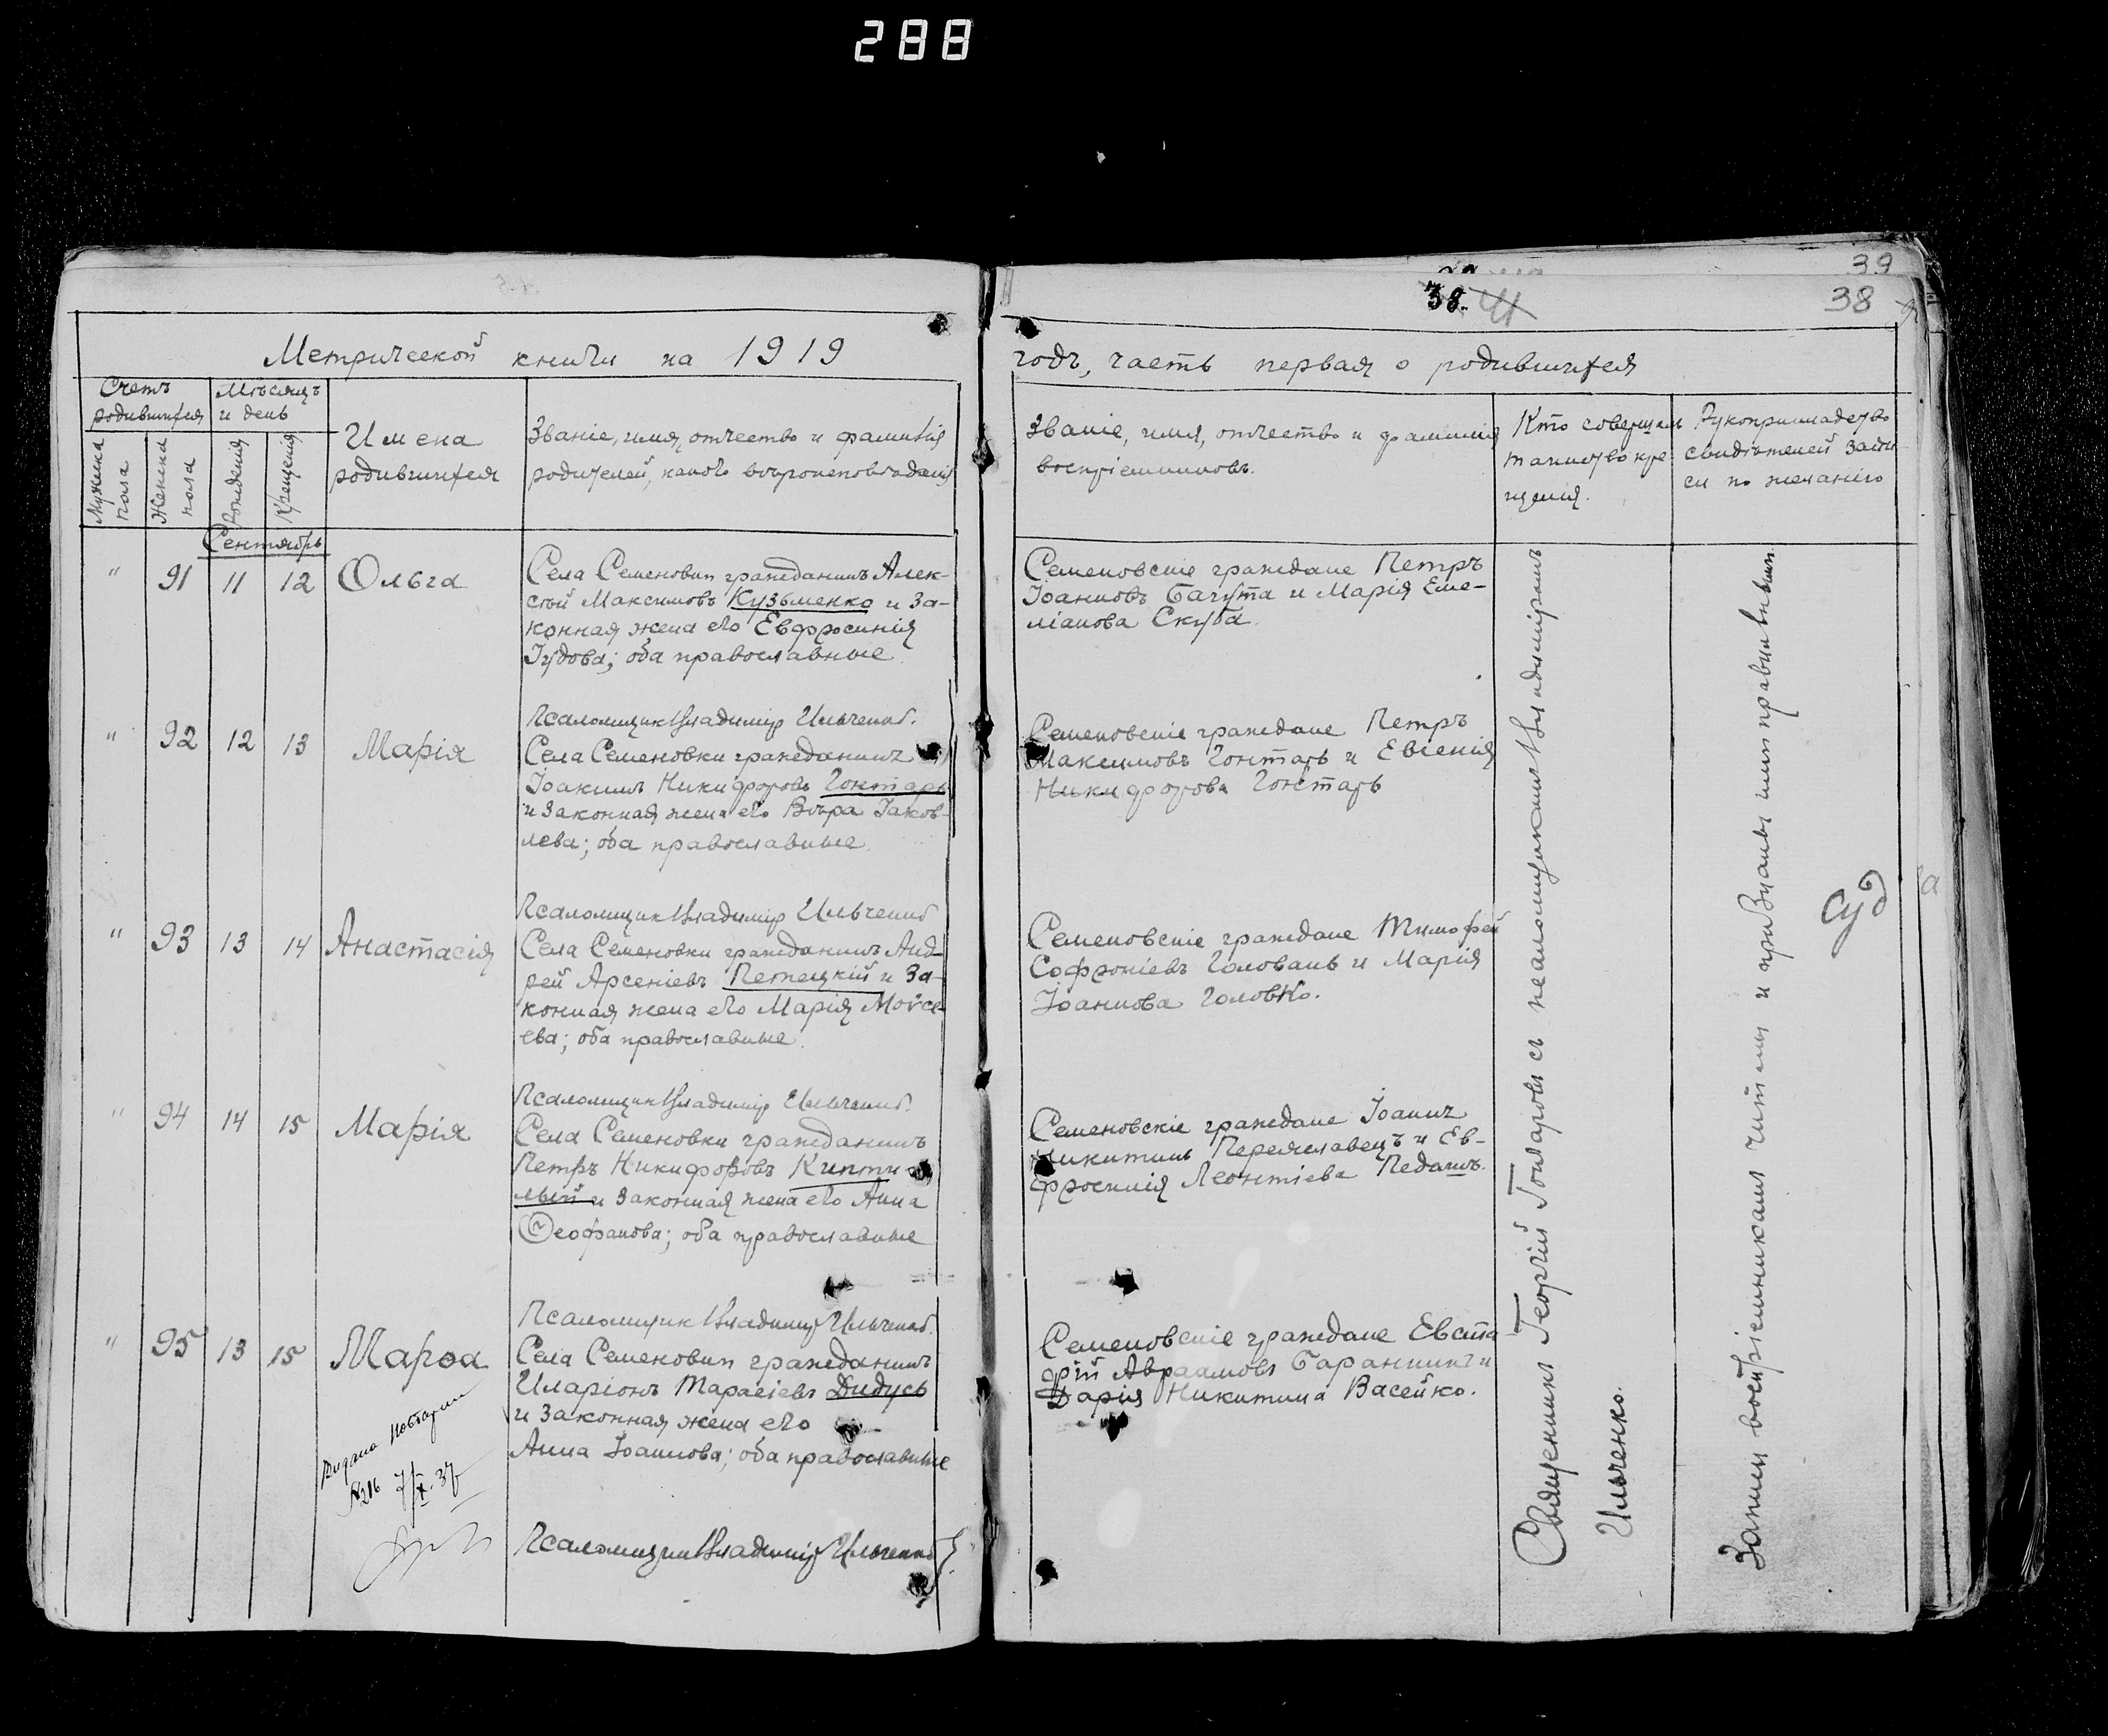 288
39
38. 41
38
Метрической книги на 1919
годъ, часть первая о родившихся
Счетъ
родившихся
Мѣсяцъ
и день
Мужеска
пола
Женска
пола
Рожденія
Крещенія
Имена
родившихся
Званіе, имя, отчество и фамилія
родителей, какого вѣроисповѣданія
Званіе, имя, отчество и фамилія
воспріемниковъ.
Кто совершалъ
таинство кре
щенія.
Рукоприкладство
свидѣтелей запи
си по желанію
Сентябрь
" 91 11 12 Ольга
Села Семеновки гражданинъ Алек-
сѣй Максимовъ Кузьменко и за-
конная жена его Евфросинія
Іудова; оба православные.
Семеновскіе граждане Петръ
Іоанновъ Багута и Марія Еме-
ліанова Скуба.
Псаломщикъ Владиміръ Ильченко.
" 92 12 13 Марія
Села Семеновки гражданинъ
Іоакимъ Никифоровъ Гонтарь
и законная жена его Вѣра Іаков-
лева; оба православные.
Семеновскіе граждане Петръ
Максимовъ Гонтарь и Евгенія
Никифорова Гонтарь
Псаломщикъ Владиміръ Ильченко
" 93 13 14 Анастасія
Села Семеновки гражданинъ Анд-
рей Арсеніевъ Петецкій и за-
конная жена его Марія Мойсе-
ева; оба православные.
Семеновскіе граждане Тимофей
Софроніевъ Головань и Марія
Іоаннова Головко.
Псаломщикъ Владиміръ Ильченко.
" 94 14 15 Марія
Села Семеновки гражданинъ
Петръ Никифоровъ
и законная жена его Анна
Ѳеофанова; оба православные
Семеновскіе граждане Іоаннъ
Никитинъ Переяславецъ и Ев-
фросинія Леонтіева Педашъ.
Псаломщикъ Владиміръ Ильченко.
" 95 13 15 Марѳа
Села Семеновки гражданинъ
Иларіонъ Тарасіевъ Дидусь
и законная жена его
Анна Іоаннова; оба православные
Семеновскіе граждане Евста
фій Авраамовъ Баранникъ и
Дарія Никитина Васейко.
Видано
№216 7/X.37
Псаломщикъ Владиміръ Ильченко
Священникъ Георгій Гонтаровъ съ псаломщикомъ Владиміромъ
Ильченко.
Записи воспріемникамъ читаны и признаны ими правильными
суд
а